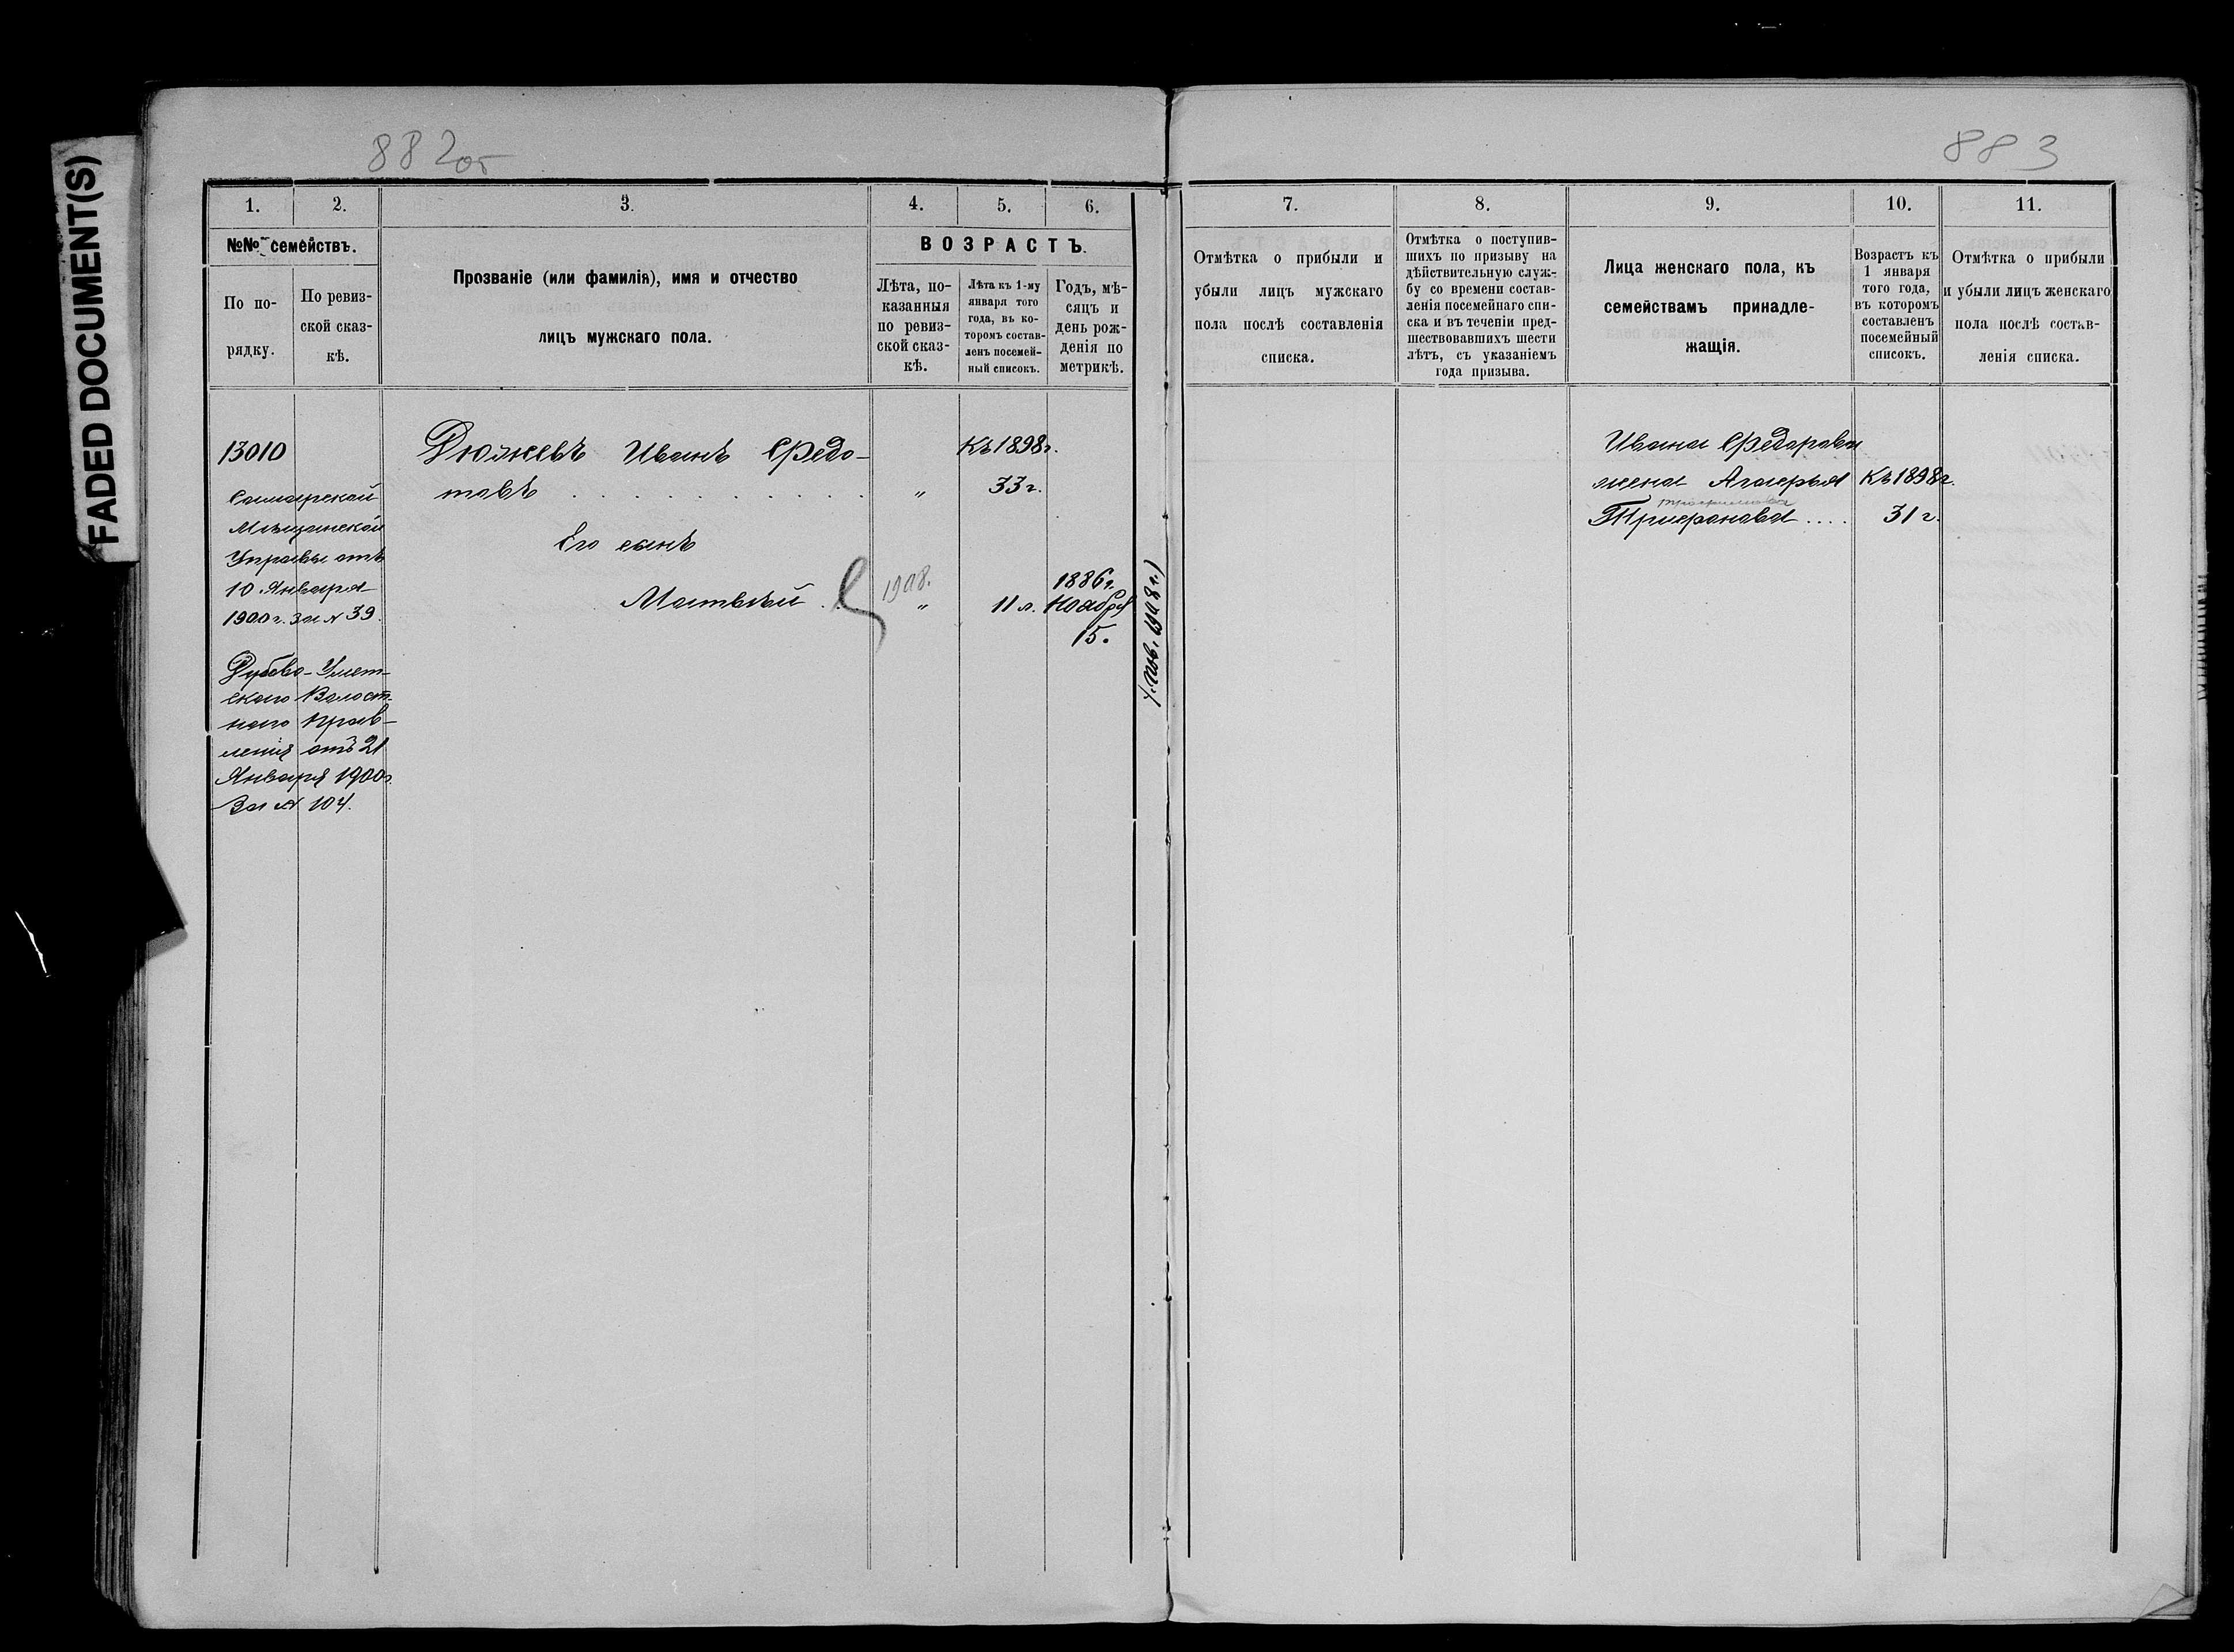 FADED DOCUMENT(S)
882об
883
1.
2.
3.
4.
5.
6.
№№ семействъ.
По по-
рядку.
По ревиз-
ской сказ-
кѣ.
Прозваніе (или фамилія), имя и отчество
лицъ мужскаго пола.
ВОЗРАСТЪ.
Лѣта, по-
казанныя
по ревиз-
ской сказ-
кѣ.
Лѣта къ 1-му
января того
года, въ ко-
торомъ состав-
ленъ посемей-
ный списокъ.
Годъ, мѣ-
сяцъ и
день рож-
денія по
метрикѣ.
13010
Самарской
Мѣщанской
Управы отъ
10 Января
1900 г. за № 39.
Дубово-Умет-
скаго Волост-
наго Прав-
ленія отъ 21
Января 1900 г.
За № 104.
Дюжевъ Иванъ Ѳедо-
товъ . . . . . . . . . . . „ Къ 1898 г.
33 г.
Его сынъ
Матвѣй . . 1908. „ 11 л. 1886 г.
Ноября
15.
(пов. 1908 г.)
7.
8.
9.
10.
11.
Отмѣтка о прибыли и
убыли лицъ мужскаго
пола послѣ составленія
списка.
Отмѣтка о поступив-
шихъ по призыву на
дѣйствительную служ-
бу со времени состав-
ленія посемейнаго спи-
ска и въ теченіи пред-
шествовавшихъ шести
лѣтъ, съ указаніемъ
года призыва.
Лица женскаго пола, къ
семействамъ принадле-
жащія.
Возрастъ къ
1 января
того года,
въ которомъ
составленъ
посемейный
списокъ.
Отмѣтка о прибыли
и убыли лицъ женскаго
пола послѣ состав-
ленія списка.
Ивана Ѳедотова
жена Агафья Къ 1898 г.
Трифонова .... 31 г.